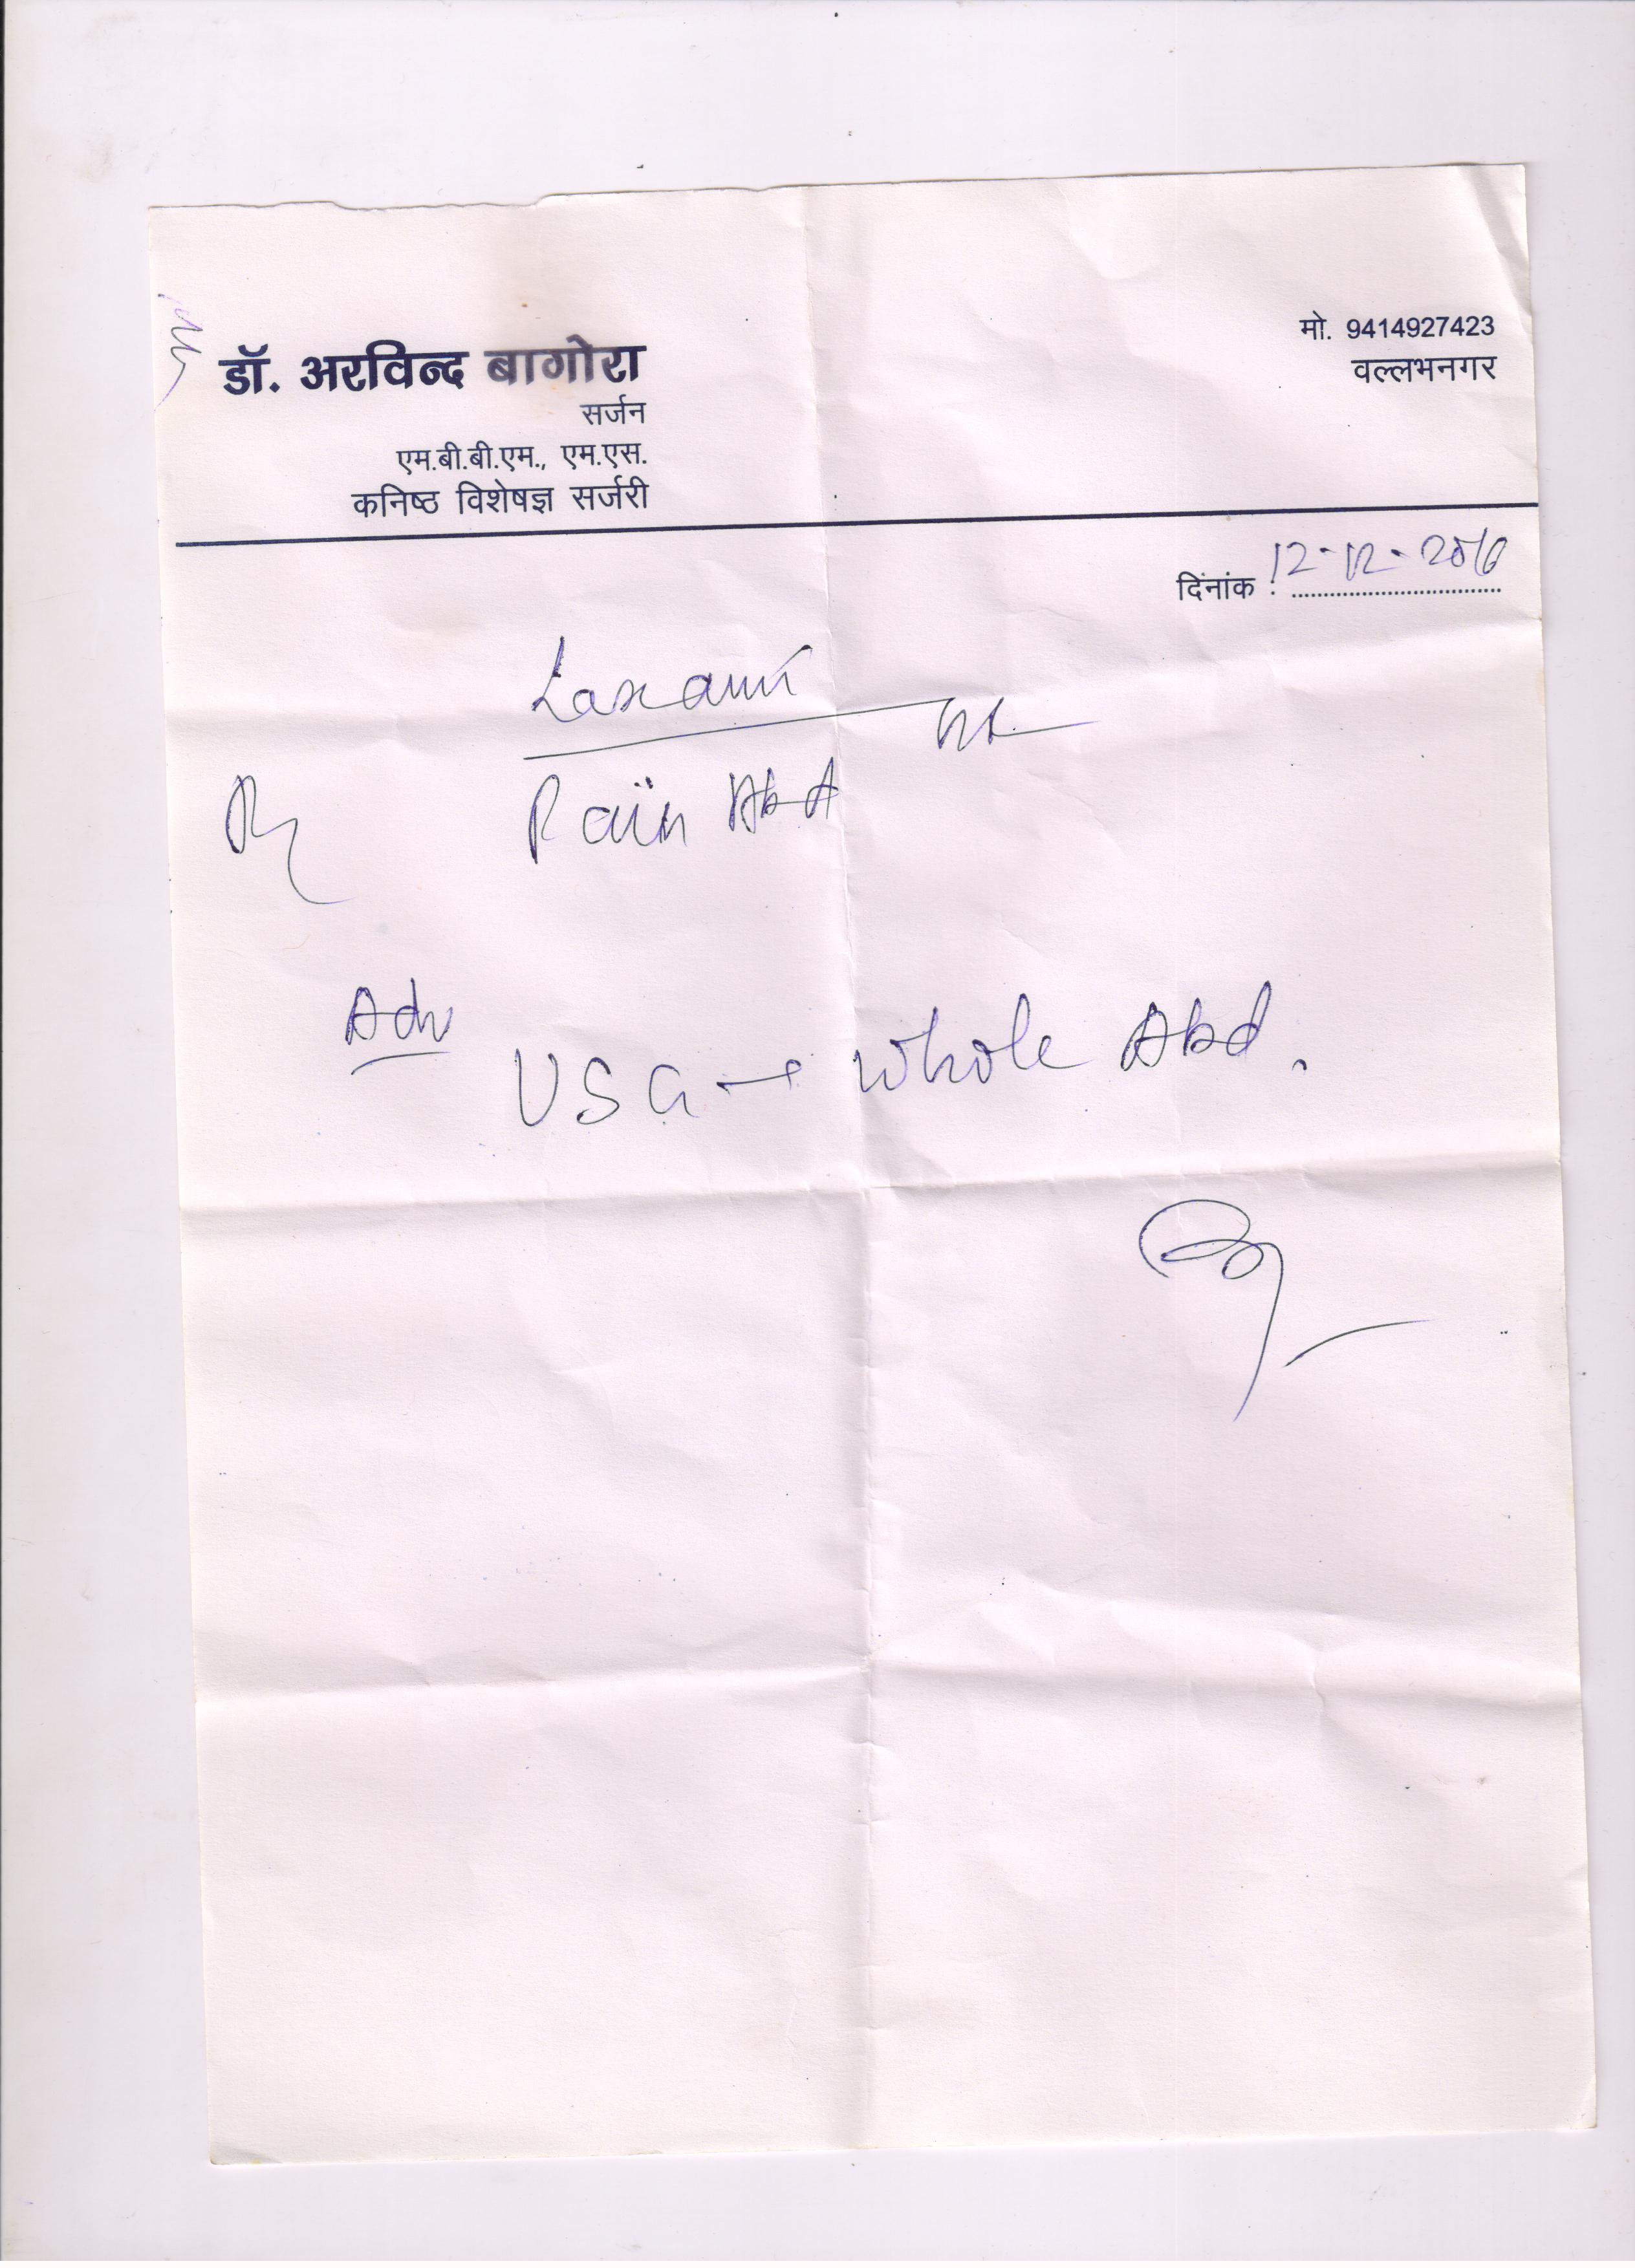 मो. 9414927423
डॉ. अरविन्द बागोरा
वल्लभनगर
सर्जन
एम.बी.बी.एम., एम.एस.
कनिष्ठ विशेषज्ञ सर्जरी
दिंनांक : 12-12-2016
Laxami
Rx Pain Abd
Adv
USG → Whole Abd.